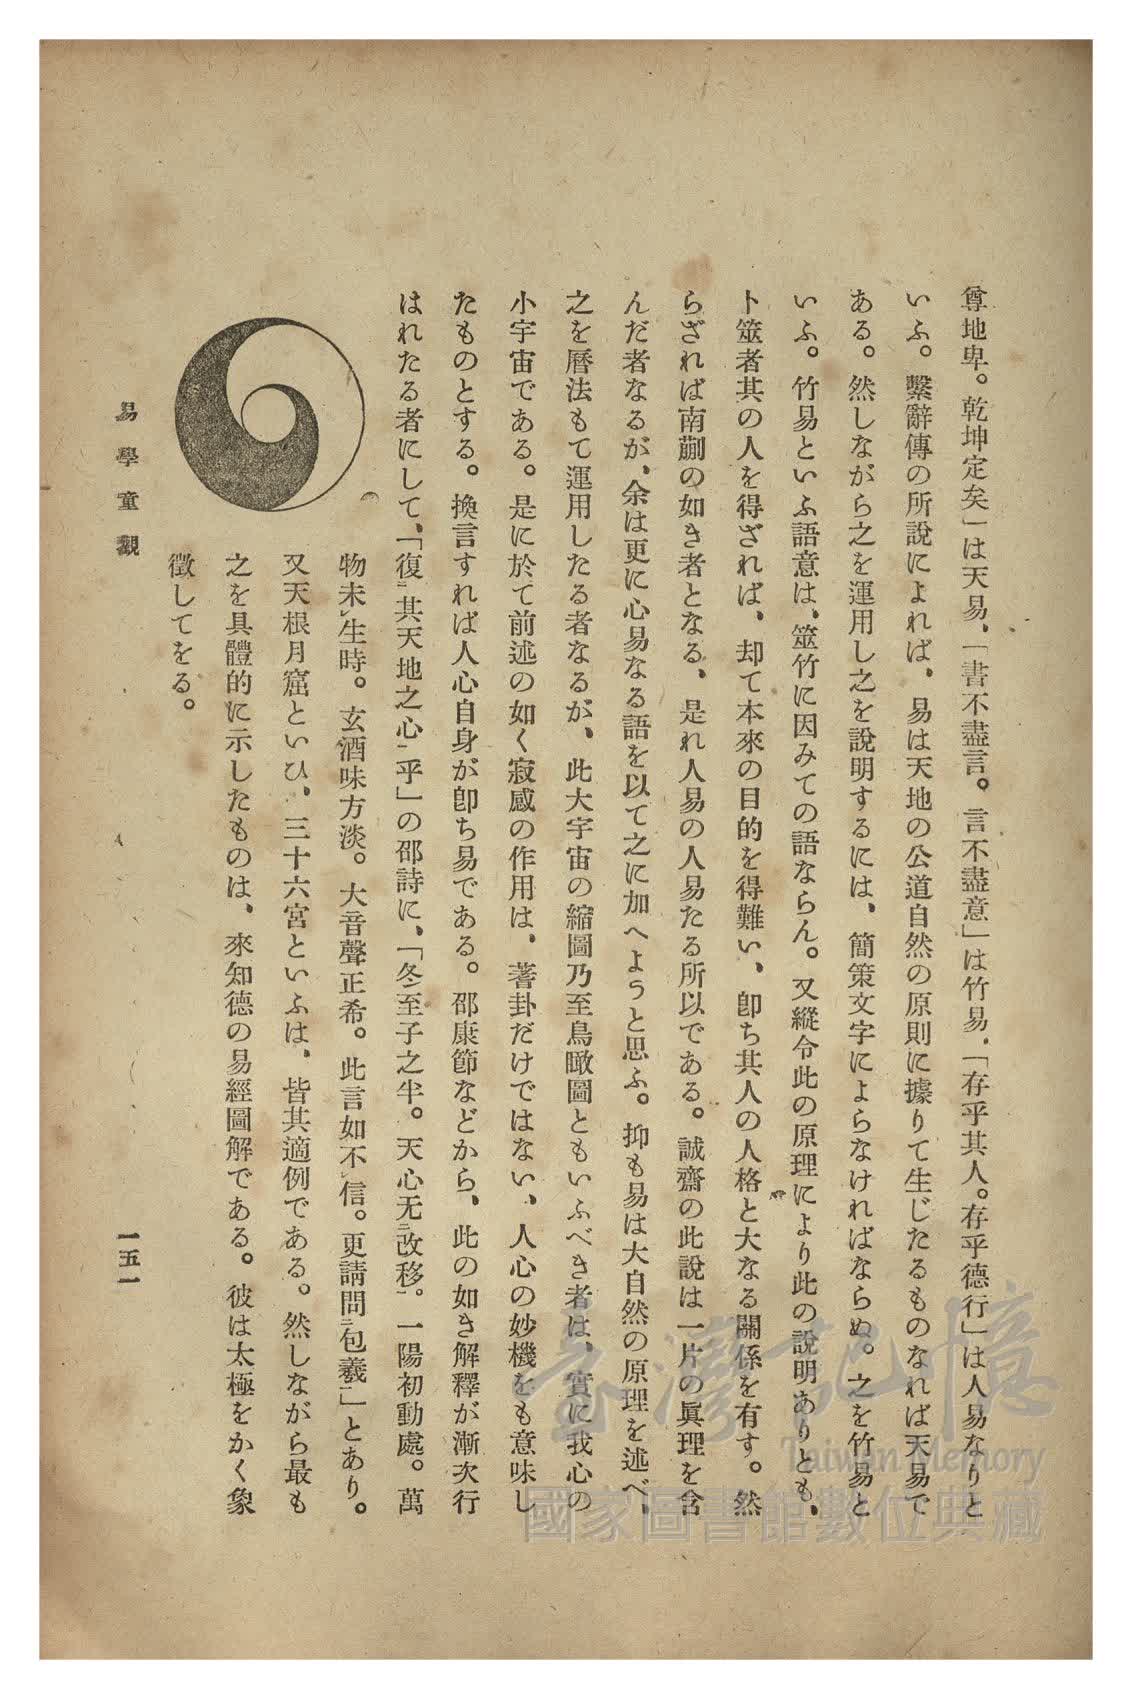 尊地卑。乾坤定矣」は天易、「書不盡言。言不盡意」は竹易、「存乎其人。存乎德行」は人易なりと
いふ。繫辭傳の所說によれば、易は天地の公道自然の原則に據りて生じたるものなれば天易で
ある。然しながら之を運用し之を說明するには、簡策文字によらなければならぬ。之を竹易と
いふ。竹易といふ語意は、筮竹に因みての語ならん。又縱令此の原理により此の說明ありとも、
卜筮者其の人を得ざれば、却て本來の目的を得難い、卽ち其人の人格と大なる關係を有す。然
らざれば南蒯の如き者となる、是れ人易の人易たる所以である。誠齋の此說は一片の眞理を含
んだ者なるが、余は更に心易なる語を以て之に加へようと思ふ。抑も易は大自然の原理を述べ、
之を曆法もて運用したる者なるが、此大宇宙の縮圖乃至鳥瞰圖ともいふべき者は、實に我心の
小宇宙である。是に於て前述の如く寂感の作用は、蓍卦だけではない、人心の妙機をも意味し
たものとする。換言すれば人心自身が卽ち易である。邵康節などから、此の如き解釋が漸次行
はれたる者にして、「復二其天地之心一乎」の邵詩に、「冬至子之半。天心无二改移一。一陽初動處。萬
物未レ生時。玄酒味方淡。大音聲正希。此言如不レ信。更請問二包羲一」とあり。
又天根月窟といひ、三十六宮といふは、皆其適例である。然しながら最も
之を具體的に示したものは、來知德の易經圖解である。彼は太極をかく象
徵してをる。
易學童觀
一五一
臺灣記憶
Taiwan Memory
國家圖書館數位典藏